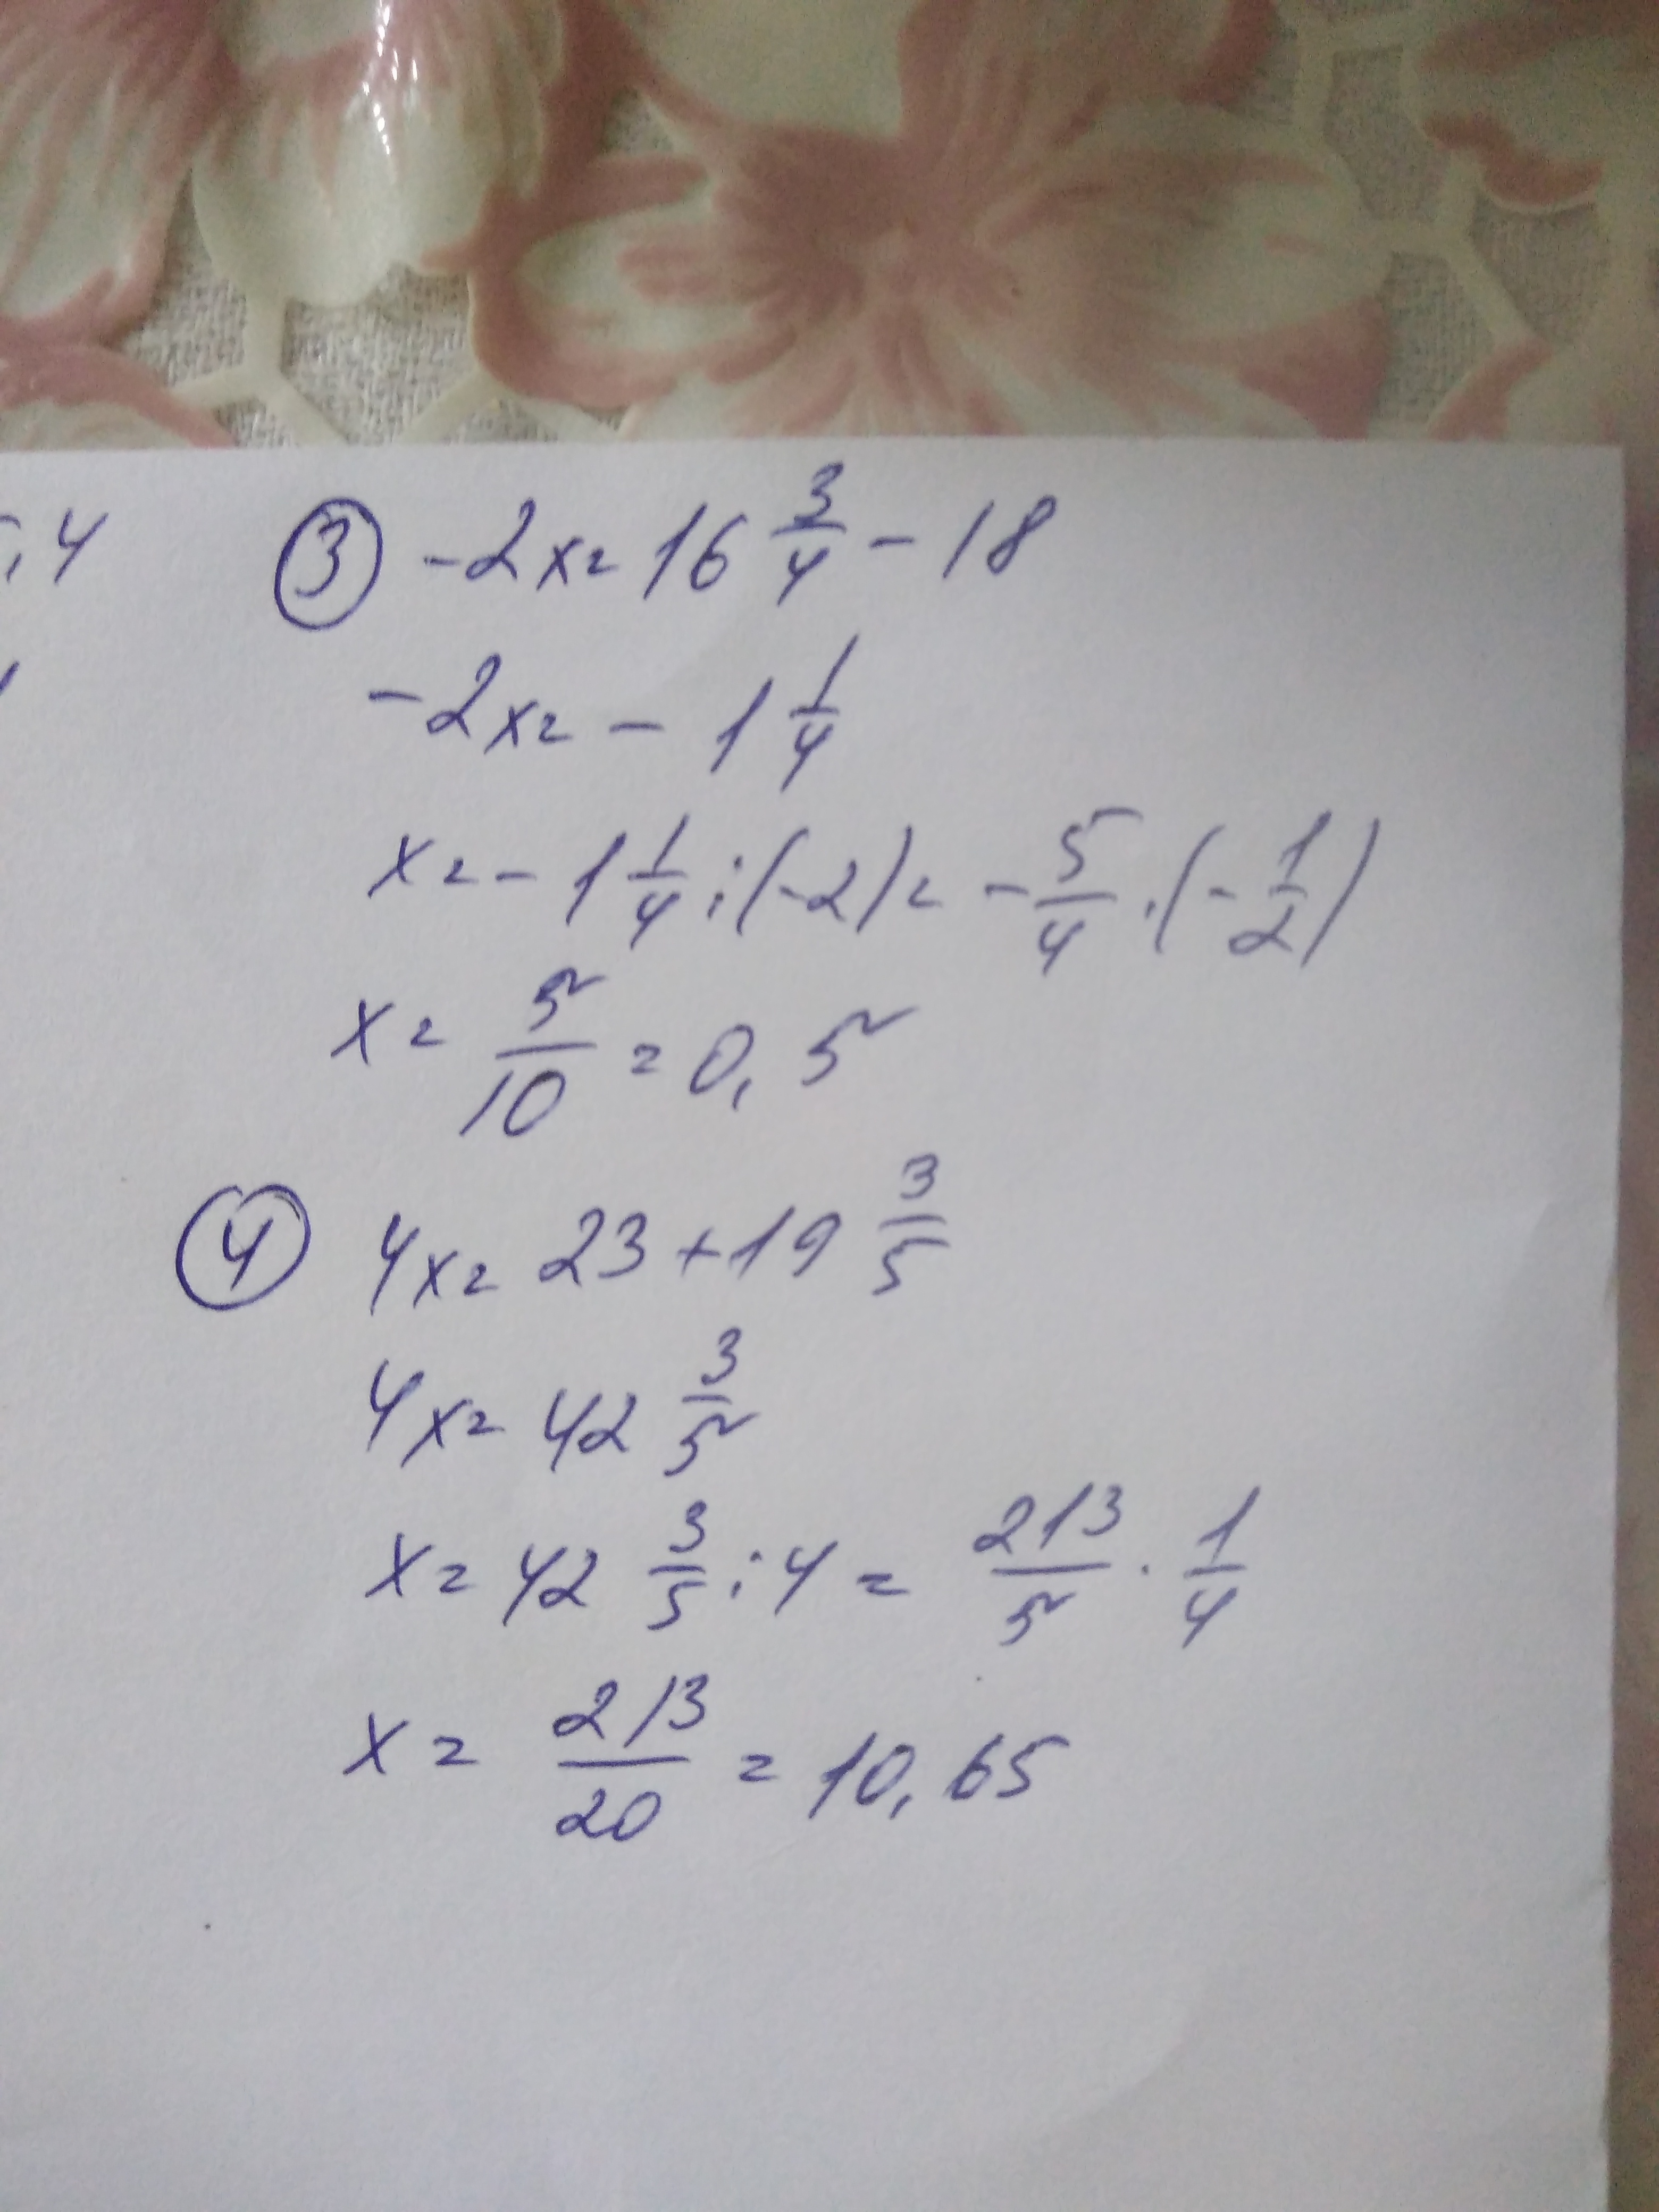 ,4
③ -2x = 16 3/4 - 18
-2x = - 1 1/4
x = - 1 1/4 : (-2) = - 5/4 · (- 1/2)
x = 5/10 = 0,5
④ 4x = 23 + 19 3/5
4x = 42 3/5
x = 42 3/5 : 4 = 213/5 · 1/4
x = 213/20 = 10,65